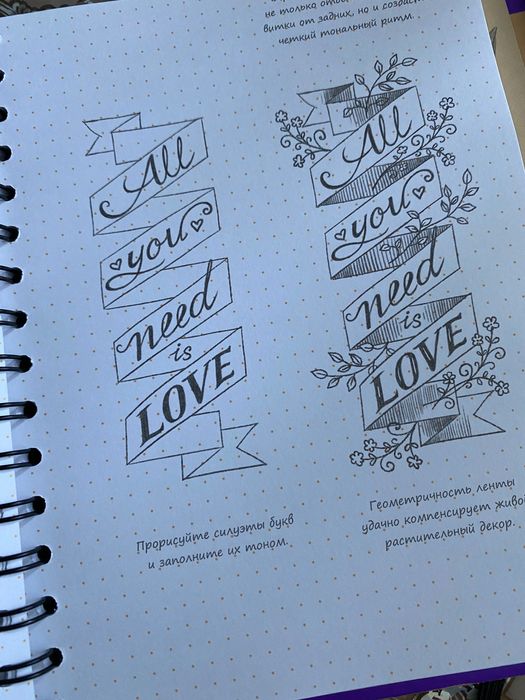 не только
витки от задних, но и
четкий тональный ритм.
All
you
need
is
LOVE
All
you
need
is
LOVE
Прорисуйте силуэты букв
и заполните их тоном.
Геометричность ленты
удачно компенсирует
растительный декор.